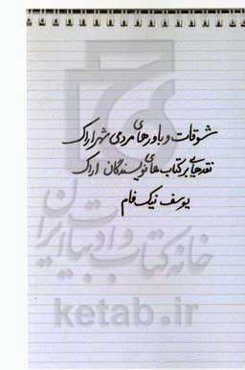 شوقات و باورهای مردمی شهر اراک
نقدهایی بر کتاب‌های نویسندگان اراک
یوسف نیک‌فام
خانه کتاب و ادبیات ایران
ketab.ir